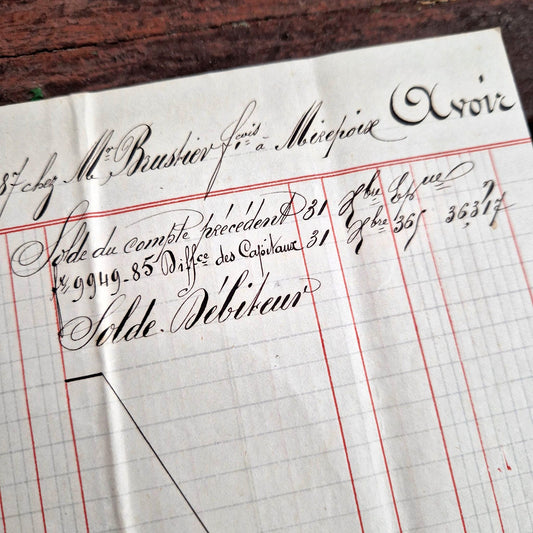 87 chez Mr Brustier fçois à Mirepoix Avoir
Solde du compte précédent 31 Xbre Epque
9949.85 Diffce des Capitaux 31 Xbre 365 36317
Solde Débiteur